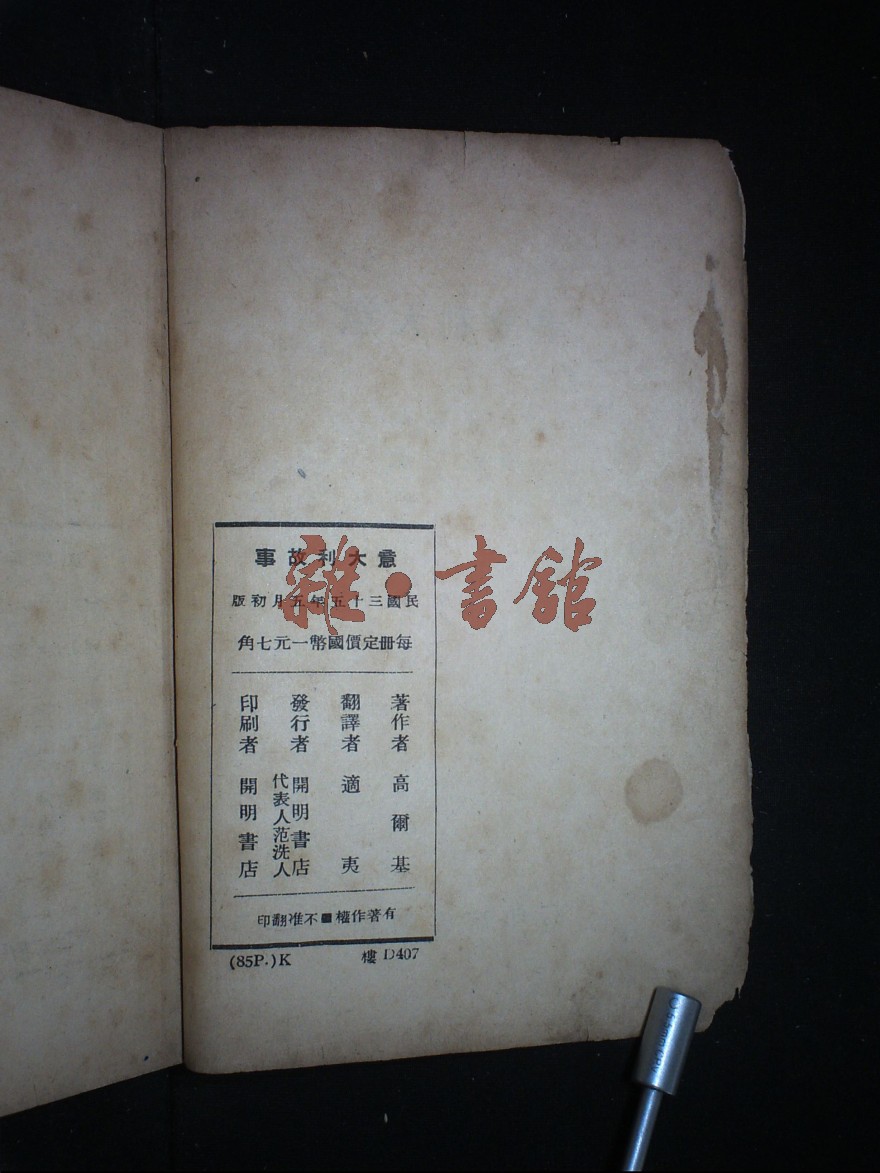 意大利故事
民國三十五年五月初版
每册定價國幣一元七角
著作者 高爾基
翻譯者 適夷
發行者 開明書店
代表人范洗人
印刷者 開明書店
有著作權■不准翻印
(85P.)K 樓 D407
雜·書館